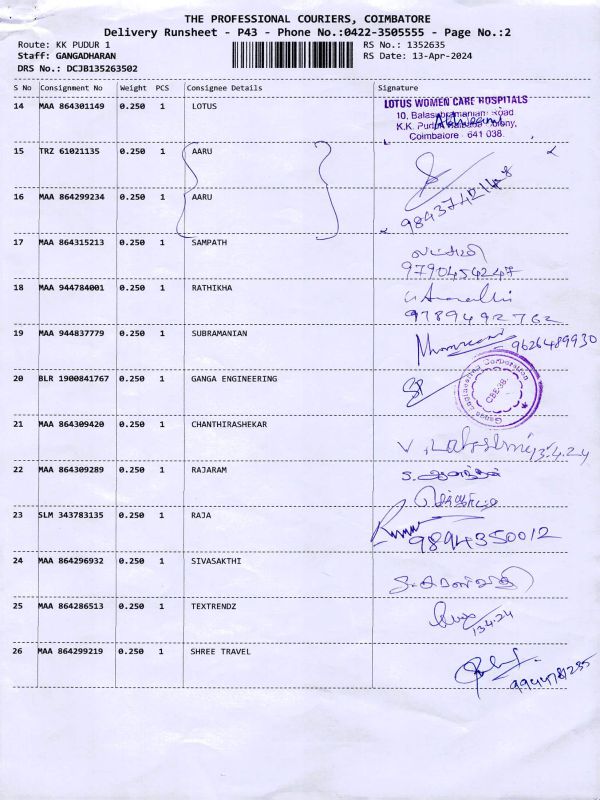 THE PROFESSIONAL COURIERS, COIMBATORE
Delivery Runsheet - P43 - Phone No.:0422-3505555 - Page No.:2
Route: KK PUDUR 1 RS No.: 1352635
Staff: GANGADHARAN RS Date: 13-Apr-2024
DRS No.: DCJB135263502
S No Consignment No Weight PCS Consignee Details Signature
14 MAA 864301149 0.250 1 LOTUS
LOTUS WOMEN CARE HOSPITALS
10, Balasubramaniam Road
K.K. Pudur, Colony,
Coimbatore 641 038.
15 TRZ 61021135 0.250 1 AARU
16 MAA 864299234 0.250 1 AARU
17 MAA 864315213 0.250 1 SAMPATH
9790454247
18 MAA 944784001 0.250 1 RATHIKHA
9789492762
19 MAA 944837779 0.250 1 SUBRAMANIAN
9626489930
20 BLR 1900841767 0.250 1 GANGA ENGINEERING
Ganga Engineering Corporation
CBE-38.
21 MAA 864309420 0.250 1 CHANTHIRASHEKAR
V. Lakshmi 13.4.24
22 MAA 864309289 0.250 1 RAJARAM
23 SLM 343783135 0.250 1 RAJA
Kumar 9894350012
24 MAA 864296932 0.250 1 SIVASAKTHI
25 MAA 864286513 0.250 1 TEXTRENDZ
13.4.24
26 MAA 864299219 0.250 1 SHREE TRAVEL